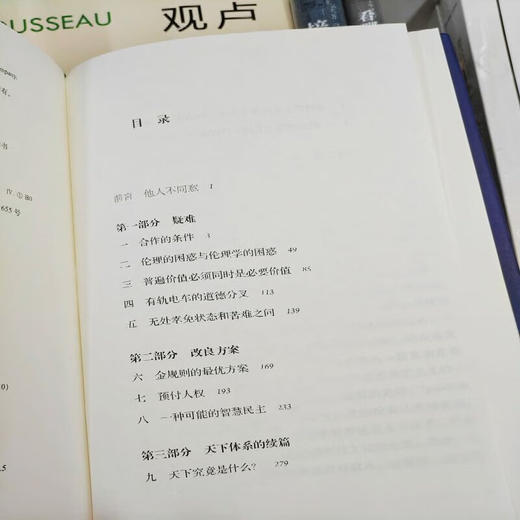 USSEAU
观卢
mpany.
有。
书
IV. ① B0
655 号
0)
.5
目 录
前言 他人不同意 1
第一部分 疑难
一 合作的条件 3
二 伦理的困惑与伦理学的困惑 49
三 普遍价值必须同时是必要价值 85
四 有轨电车的道德分叉 113
五 无处幸免状态和苦难之问 139
第二部分 改良方案
六 金规则的最优方案 169
七 预付人权 193
八 一种可能的智慧民主 233
第三部分 天下体系的续篇
九 天下究竟是什么？ 279